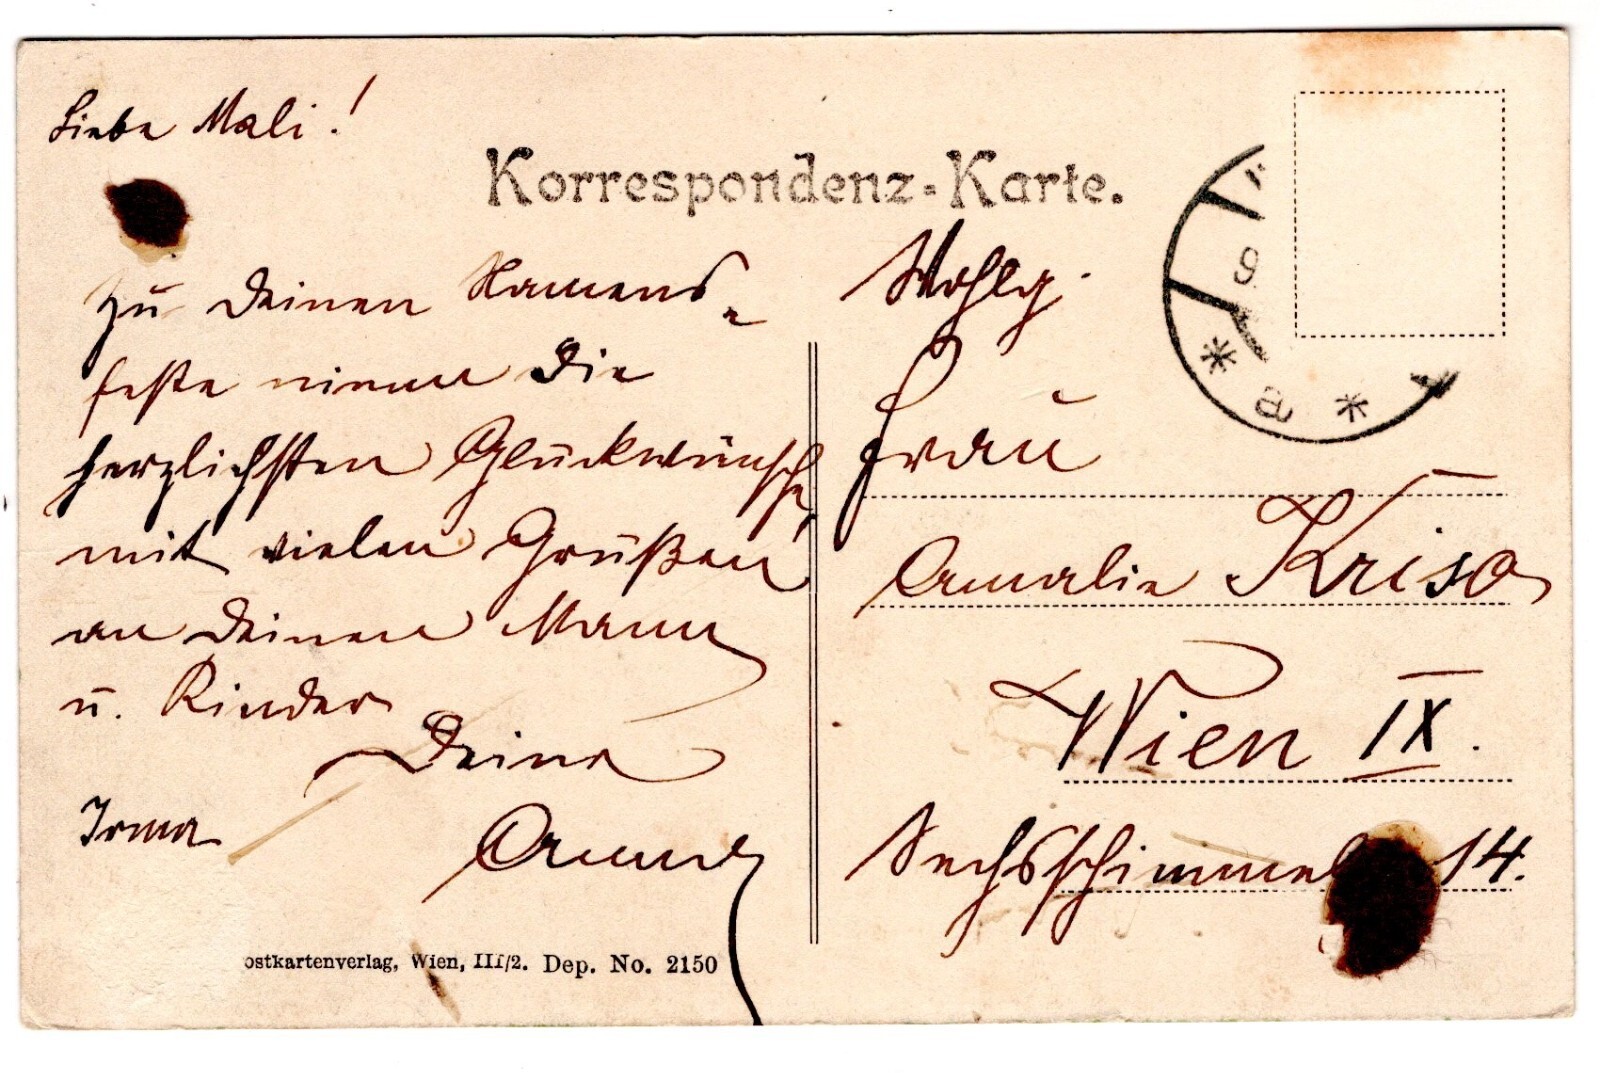 Liebe Mali!
Korrespondenz-Karte.
Zu Deinen Namens-
feste nimm die
herzlichsten Glückwünsche,
mit vielen Grüßen
an Deinen Mann
u. Kinder
Deine
Irma
Wohlg.
Frau
Amalie Kriso
Wien IX.
Sechsschimmel 14.
9
* a *
ostkartenverlag, Wien, III/2. Dep. No. 2150